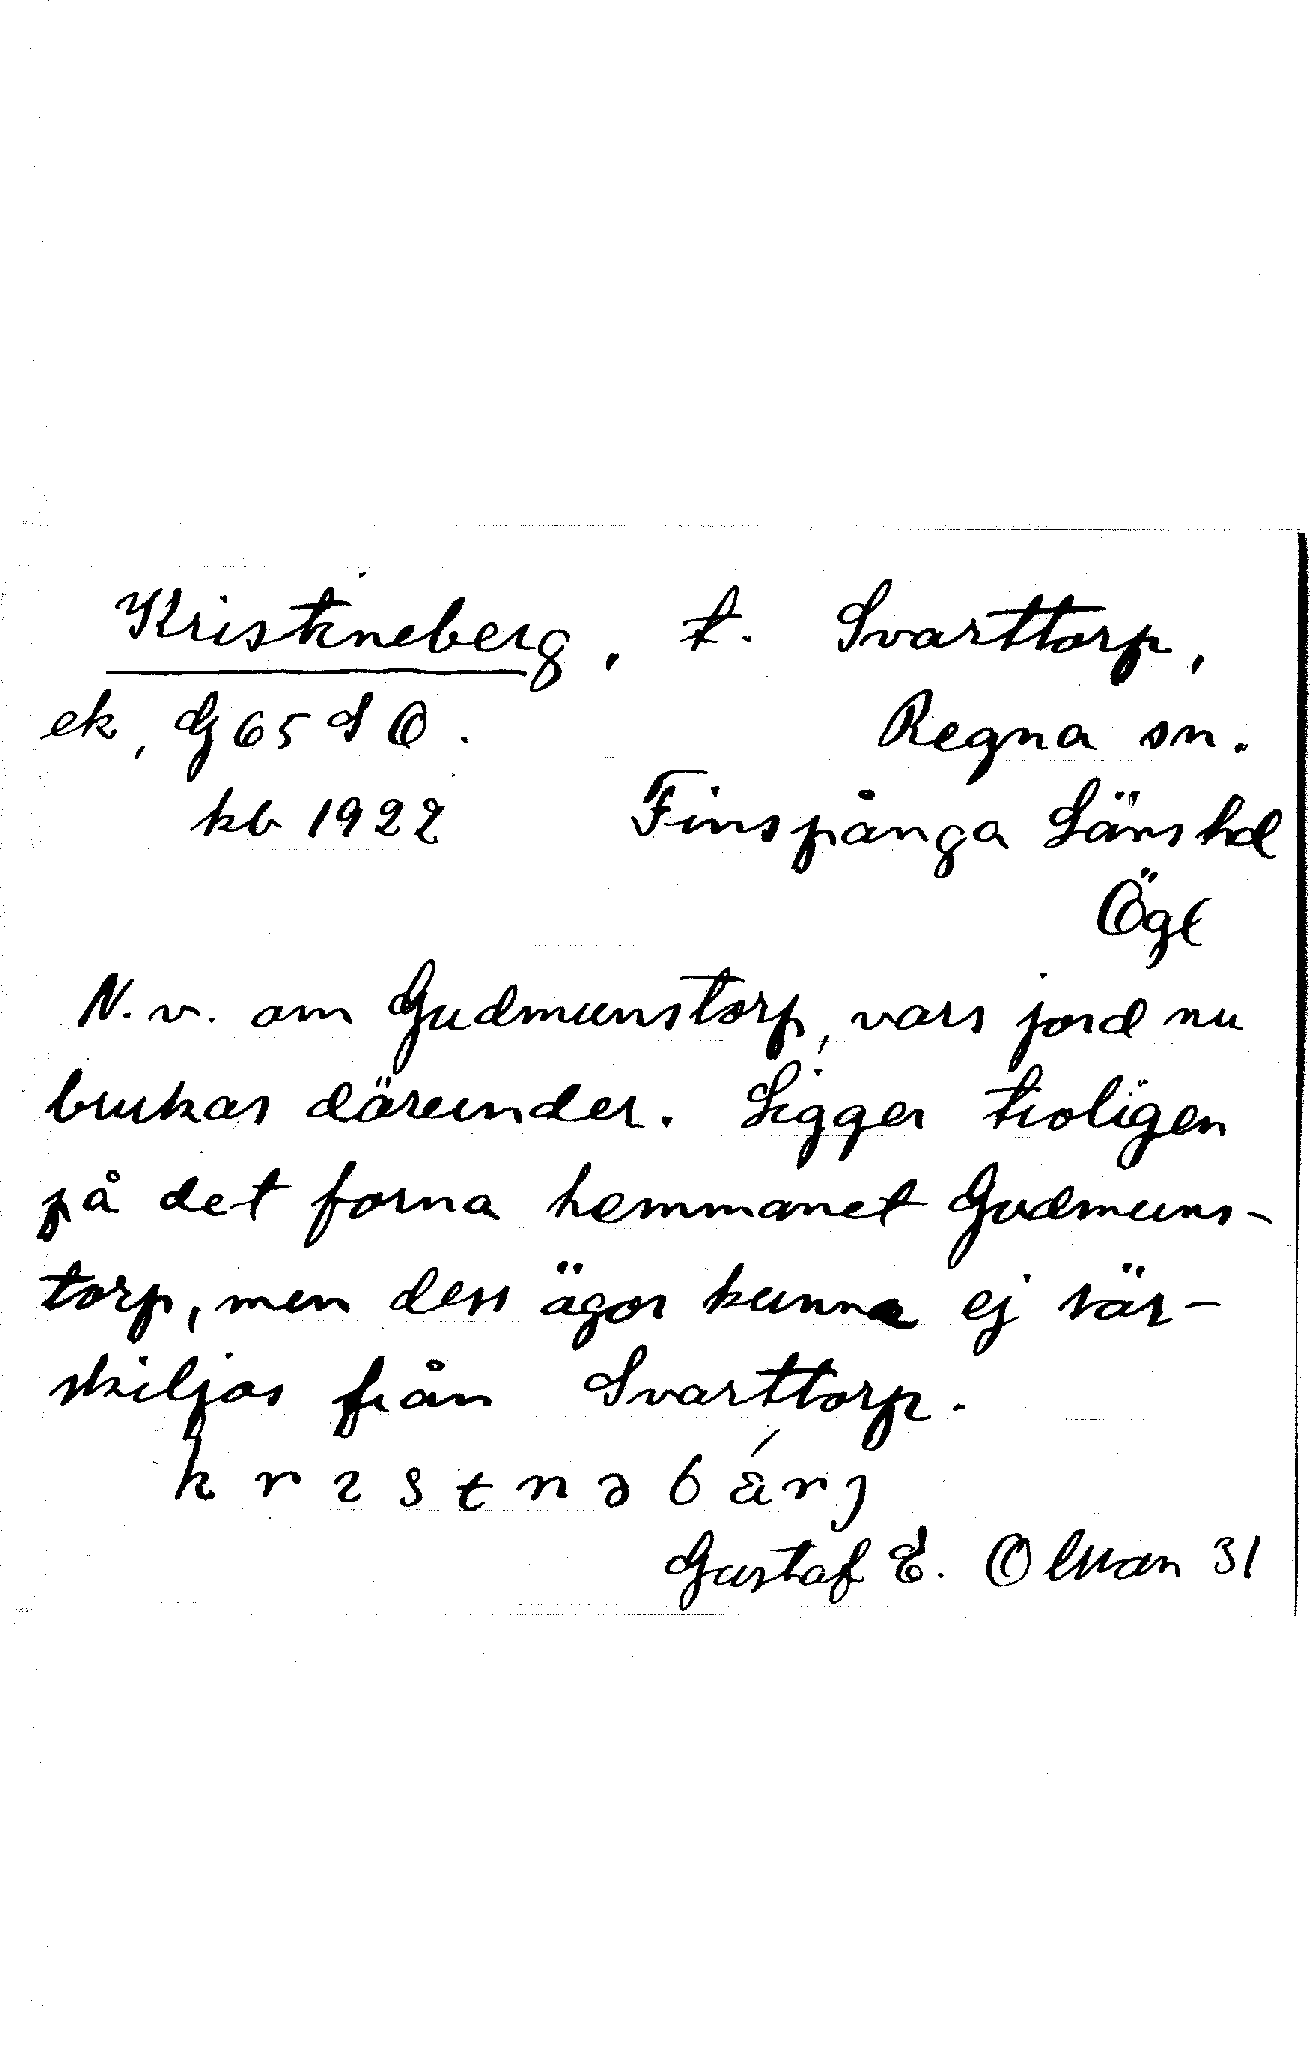 Kristineberg, t. Svarttorp,
ek, G 65 S O. Regna sn.
kb 1922 Finspånga Länshd
Ögl
N.v. om Gudmunstorp, vars jord nu
brukas därunder. Ligger troligen
på det forna hemmanet Gudmuns-
torp, men dess ägor kunna ej sär-
skiljas från Svarttorp.
krɪstnəbä́rj
Gustaf E. Olsson 31